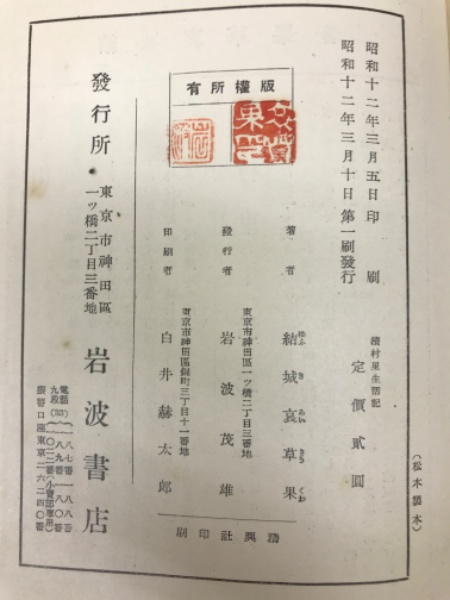 昭和十二年三月五日印刷
昭和十二年三月十日第一刷發行
續村里生活記
定價貳圓
（松本製本）
版權所有
著者
結城哀草果
ゆふきあいさうくわ
發行者
東京市神田區一ツ橋二丁目三番地
岩波茂雄
印刷者
東京市神田區錦町三丁目十一番地
白井赫太郎
精興社印刷
發行所
東京市神田區
一ツ橋二丁目三番地
岩波書店
電話
九段(33)
一八七番 一八八番
一八九番 一八〇番
一〇二二番(小賣部專用)
振替口座東京二六二四〇番